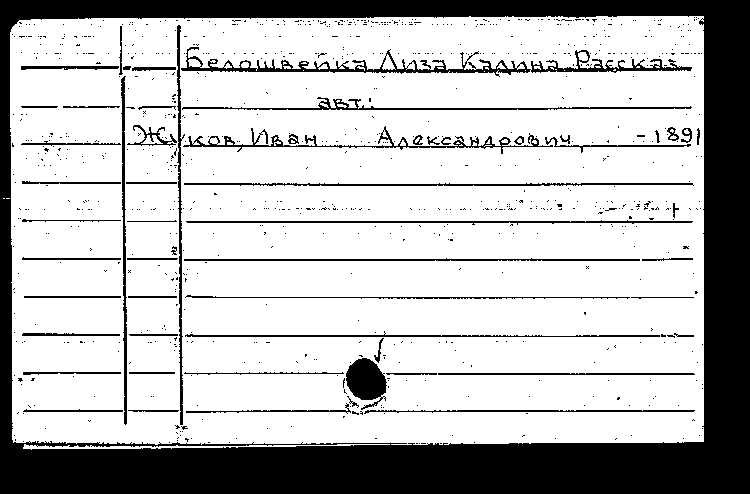 Белошвейка Лиза Калина Рассказ
авт.:
Жуков, Иван Александрович, -1891